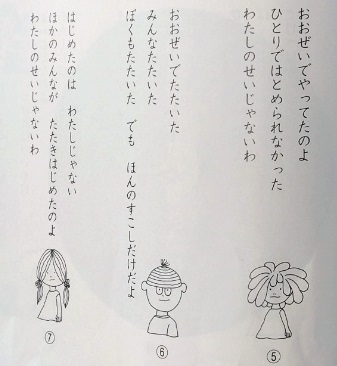 おおぜいでやってたのよ
ひとりではとめられなかった
わたしのせいじゃないわ
⑤
おおぜいでたたいた
みんなたたいた
ぼくもたたいた　でも　ほんのすこしだけだよ
⑥
はじめたのは　わたしじゃない
ほかのみんなが　たたきはじめたのよ
わたしのせいじゃないわ
⑦